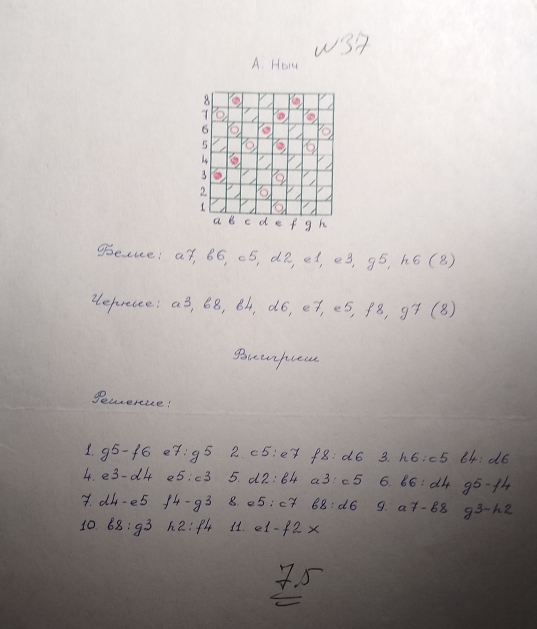 №37
А. Ныч
8
7
6
5
4
3
2
1
a b c d e f g h
Белые: a7, b6, c5, d2, e1, e3, g5, h6 (8)
Черные: a3, b8, b4, d6, e7, e5, f8, g7 (8)
Выигрыш
Решение:
1. g5-f6 e7:g5 2. c5:e7 f8:d6 3. h6:c5 b4:d6
4. e3-d4 e5:c3 5. d2:b4 a3:c5 6. b6:d4 g5-f4
7. d4-e5 f4-g3 8. e5:c7 b8:d6 9. a7-b8 g3-h2
10. b8:g3 h2:f4 11. e1-f2 x
75